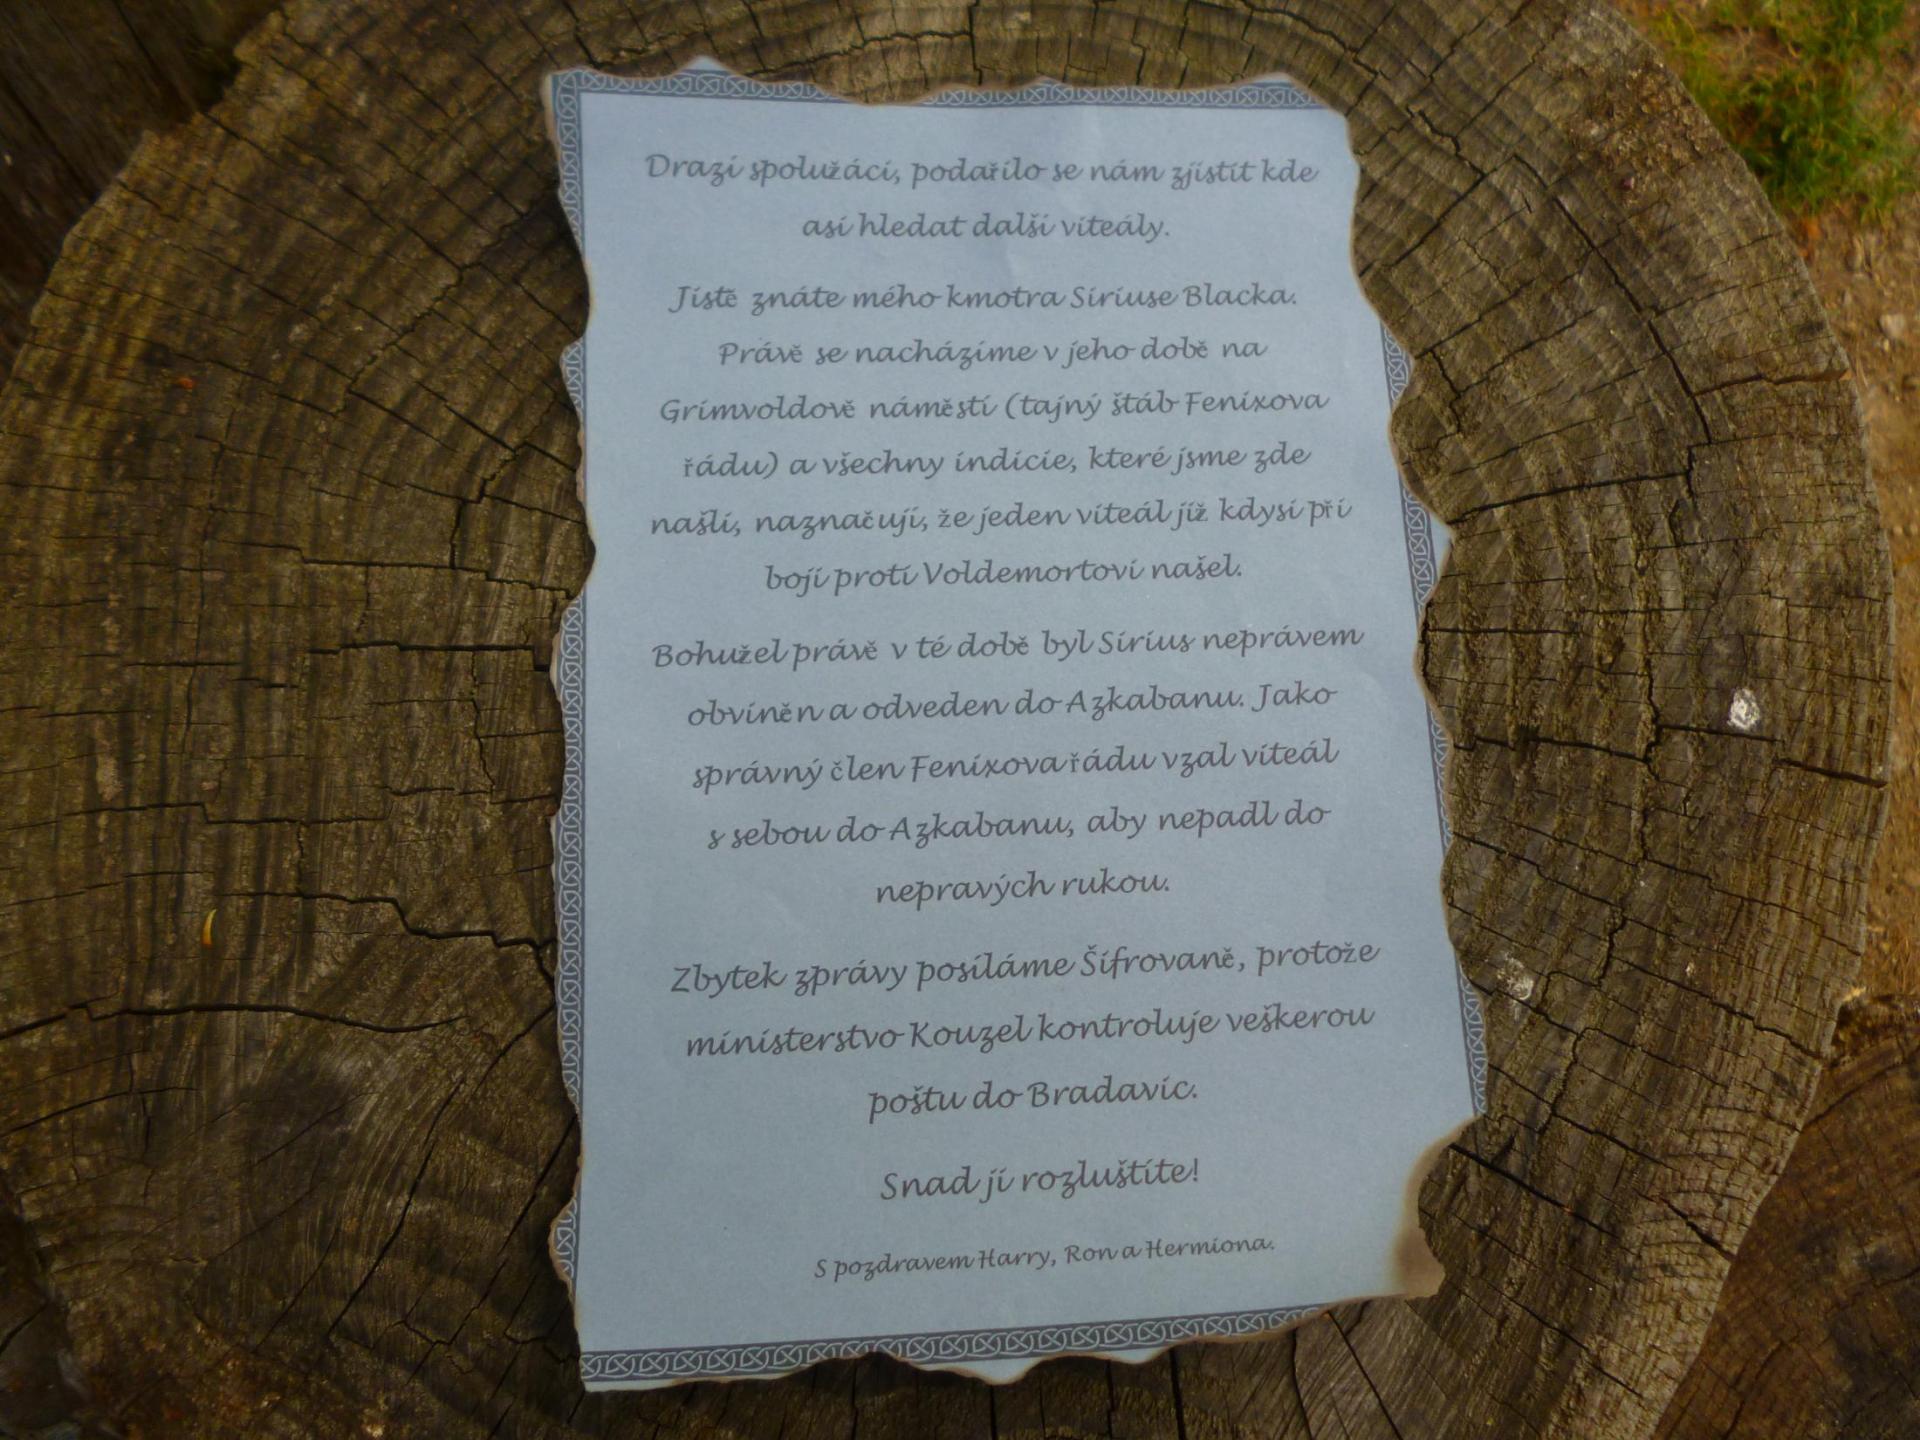 Drazí spolužáci, podařilo se nám zjistit kde
asi hledat další viteály.
Jistě znáte mého kmotra Siriuse Blacka.
Právě se nacházíme v jeho době na
Grimvoldově náměstí (tajný štáb Fenixova
řádu) a všechny indicie, které jsme zde
našli, naznačují, že jeden viteál již kdysi při
boji proti Voldemortovi našel.
Bohužel právě v té době byl Sirius neprávem
obviněn a odveden do Azkabanu. Jako
správný člen Fenixova řádu vzal viteál
s sebou do Azkabanu, aby nepadl do
nepravých rukou.
Zbytek zprávy posíláme Šifrovaně, protože
ministerstvo Kouzel kontroluje veškerou
poštu do Bradavic.
Snad ji rozluštíte!
S pozdravem Harry, Ron a Hermiona.